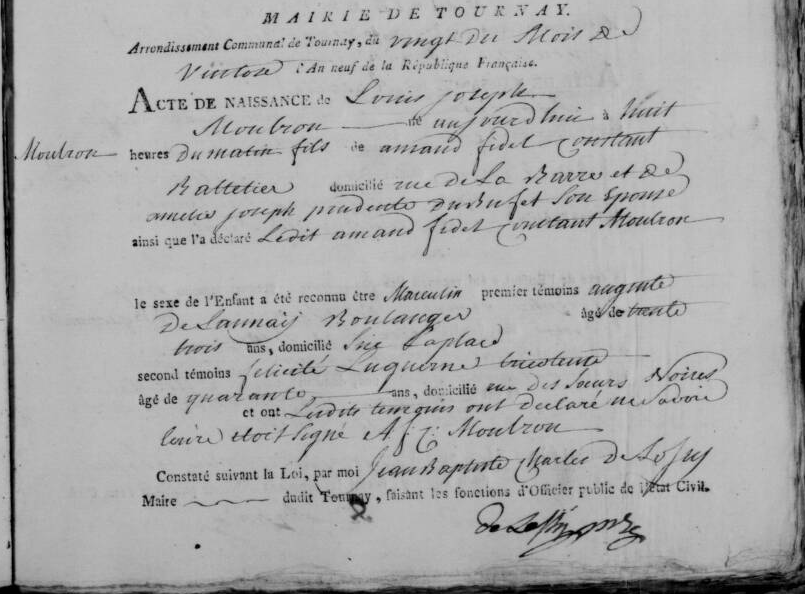 MAIRIE DE TOURNAY.
Arrondissement Communal de Tournay, du vingt du Mois de
Ventose l'An neuf de la République Française.
ACTE DE NAISSANCE de Louis Joseph
Moulron né aujourd'hui à huit
Moulron
heures du matin fils de amand fidel Constant
Battelier domicilié rue de La Barre et de
amelie joseph prudente Dubufet Son Epouse
ainsi que l'a déclaré Ledit amand fidel Constant Moulron
le sexe de l'Enfant a été reconnu être Masculin premier témoins auguste
De Launaij Boulanger âgé de trente
trois ans, domicilié Sur Laplace
second témoins felicité tricoteuse
âgé de quarante ans, domicilié rue des Soeurs Noires
et ont Lesdits temoins ont declaré ne Savoir
Ecrire etoit Signé A. f. C. Moulron
Constaté suivant la Loi, par moi Jean Baptiste Charles de
Maire dudit Tournay, faisant les fonctions d'Officier public de l'état Civil.